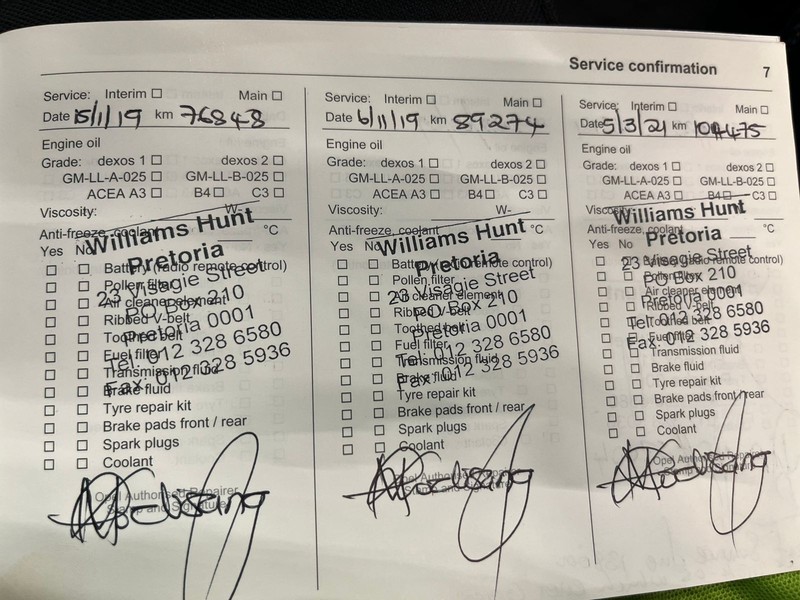 Service confirmation 7
Service: Interim ☐ Main ☐
Date 15/1/19 km 76848
Engine oil
Grade: dexos 1 ☐ dexos 2 ☐
GM-LL-A-025 ☐ GM-LL-B-025 ☐
ACEA A3 ☐ B4 ☐ C3 ☐
Viscosity: W-
Anti-freeze, coolant °C
Yes No
☐ ☐ Battery (radio remote control)
☐ ☐ Pollen filter
☐ ☐ Air cleaner element
☐ ☐ Ribbed V-belt
☐ ☐ Toothed belt
☐ ☐ Fuel filter
☐ ☐ Transmission fluid
☐ ☐ Brake fluid
☐ ☐ Tyre repair kit
☐ ☐ Brake pads front / rear
☐ ☐ Spark plugs
☐ ☐ Coolant
Williams Hunt
Pretoria
23 Visagie Street
PO Box 210
Pretoria 0001
Tel: 012 328 6580
Fax: 012 328 5936
Opel Authorised Repairer
Stamp and Signature
Service: Interim ☐ Main ☐
Date 6/11/19 km 89274
Engine oil
Grade: dexos 1 ☐ dexos 2 ☐
GM-LL-A-025 ☐ GM-LL-B-025 ☐
ACEA A3 ☐ B4 ☐ C3 ☐
Viscosity: W-
Anti-freeze, coolant °C
Yes No
☐ ☐ Battery (radio remote control)
☐ ☐ Pollen filter
☐ ☐ Air cleaner element
☐ ☐ Ribbed V-belt
☐ ☐ Toothed belt
☐ ☐ Fuel filter
☐ ☐ Transmission fluid
☐ ☐ Brake fluid
☐ ☐ Tyre repair kit
☐ ☐ Brake pads front / rear
☐ ☐ Spark plugs
☐ ☐ Coolant
Williams Hunt
Pretoria
23 Visagie Street
PO Box 210
Pretoria 0001
Tel: 012 328 6580
Fax: 012 328 5936
Opel Authorised Repairer
Stamp and Signature
Service: Interim ☐ Main ☐
Date 5/3/21 km 104475
Engine oil
Grade: dexos 1 ☐ dexos 2 ☐
GM-LL-A-025 ☐ GM-LL-B-025 ☐
ACEA A3 ☐ B4 ☐ C3 ☐
Viscosity:
Anti-freeze, coolant °C
Yes No
☐ ☐ Battery (radio remote control)
☐ ☐ Pollen filter
☐ ☐ Air cleaner element
☐ ☐ Ribbed V-belt
☐ ☐ Toothed belt
☐ ☐ Fuel filter
☐ ☐ Transmission fluid
☐ ☐ Brake fluid
☐ ☐ Tyre repair kit
☐ ☐ Brake pads front / rear
☐ ☐ Spark plugs
☐ ☐ Coolant
Williams Hunt
Pretoria
23 Visagie Street
PO Box 210
Pretoria 0001
Tel: 012 328 6580
Fax: 012 328 5936
Opel Authorised Repairer
Stamp and Signature